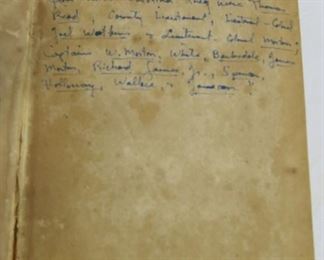 from were Thomas
Read, County Lieutenant, Lieutenant-Colonel
Joel Watkins & Lieutenant-Colonel Morton,
Captains W. Morton, White, Barksdale, James
Morton, Richard Gaines Jr., Spencer,
Holloway, Wallace, & Jameson"